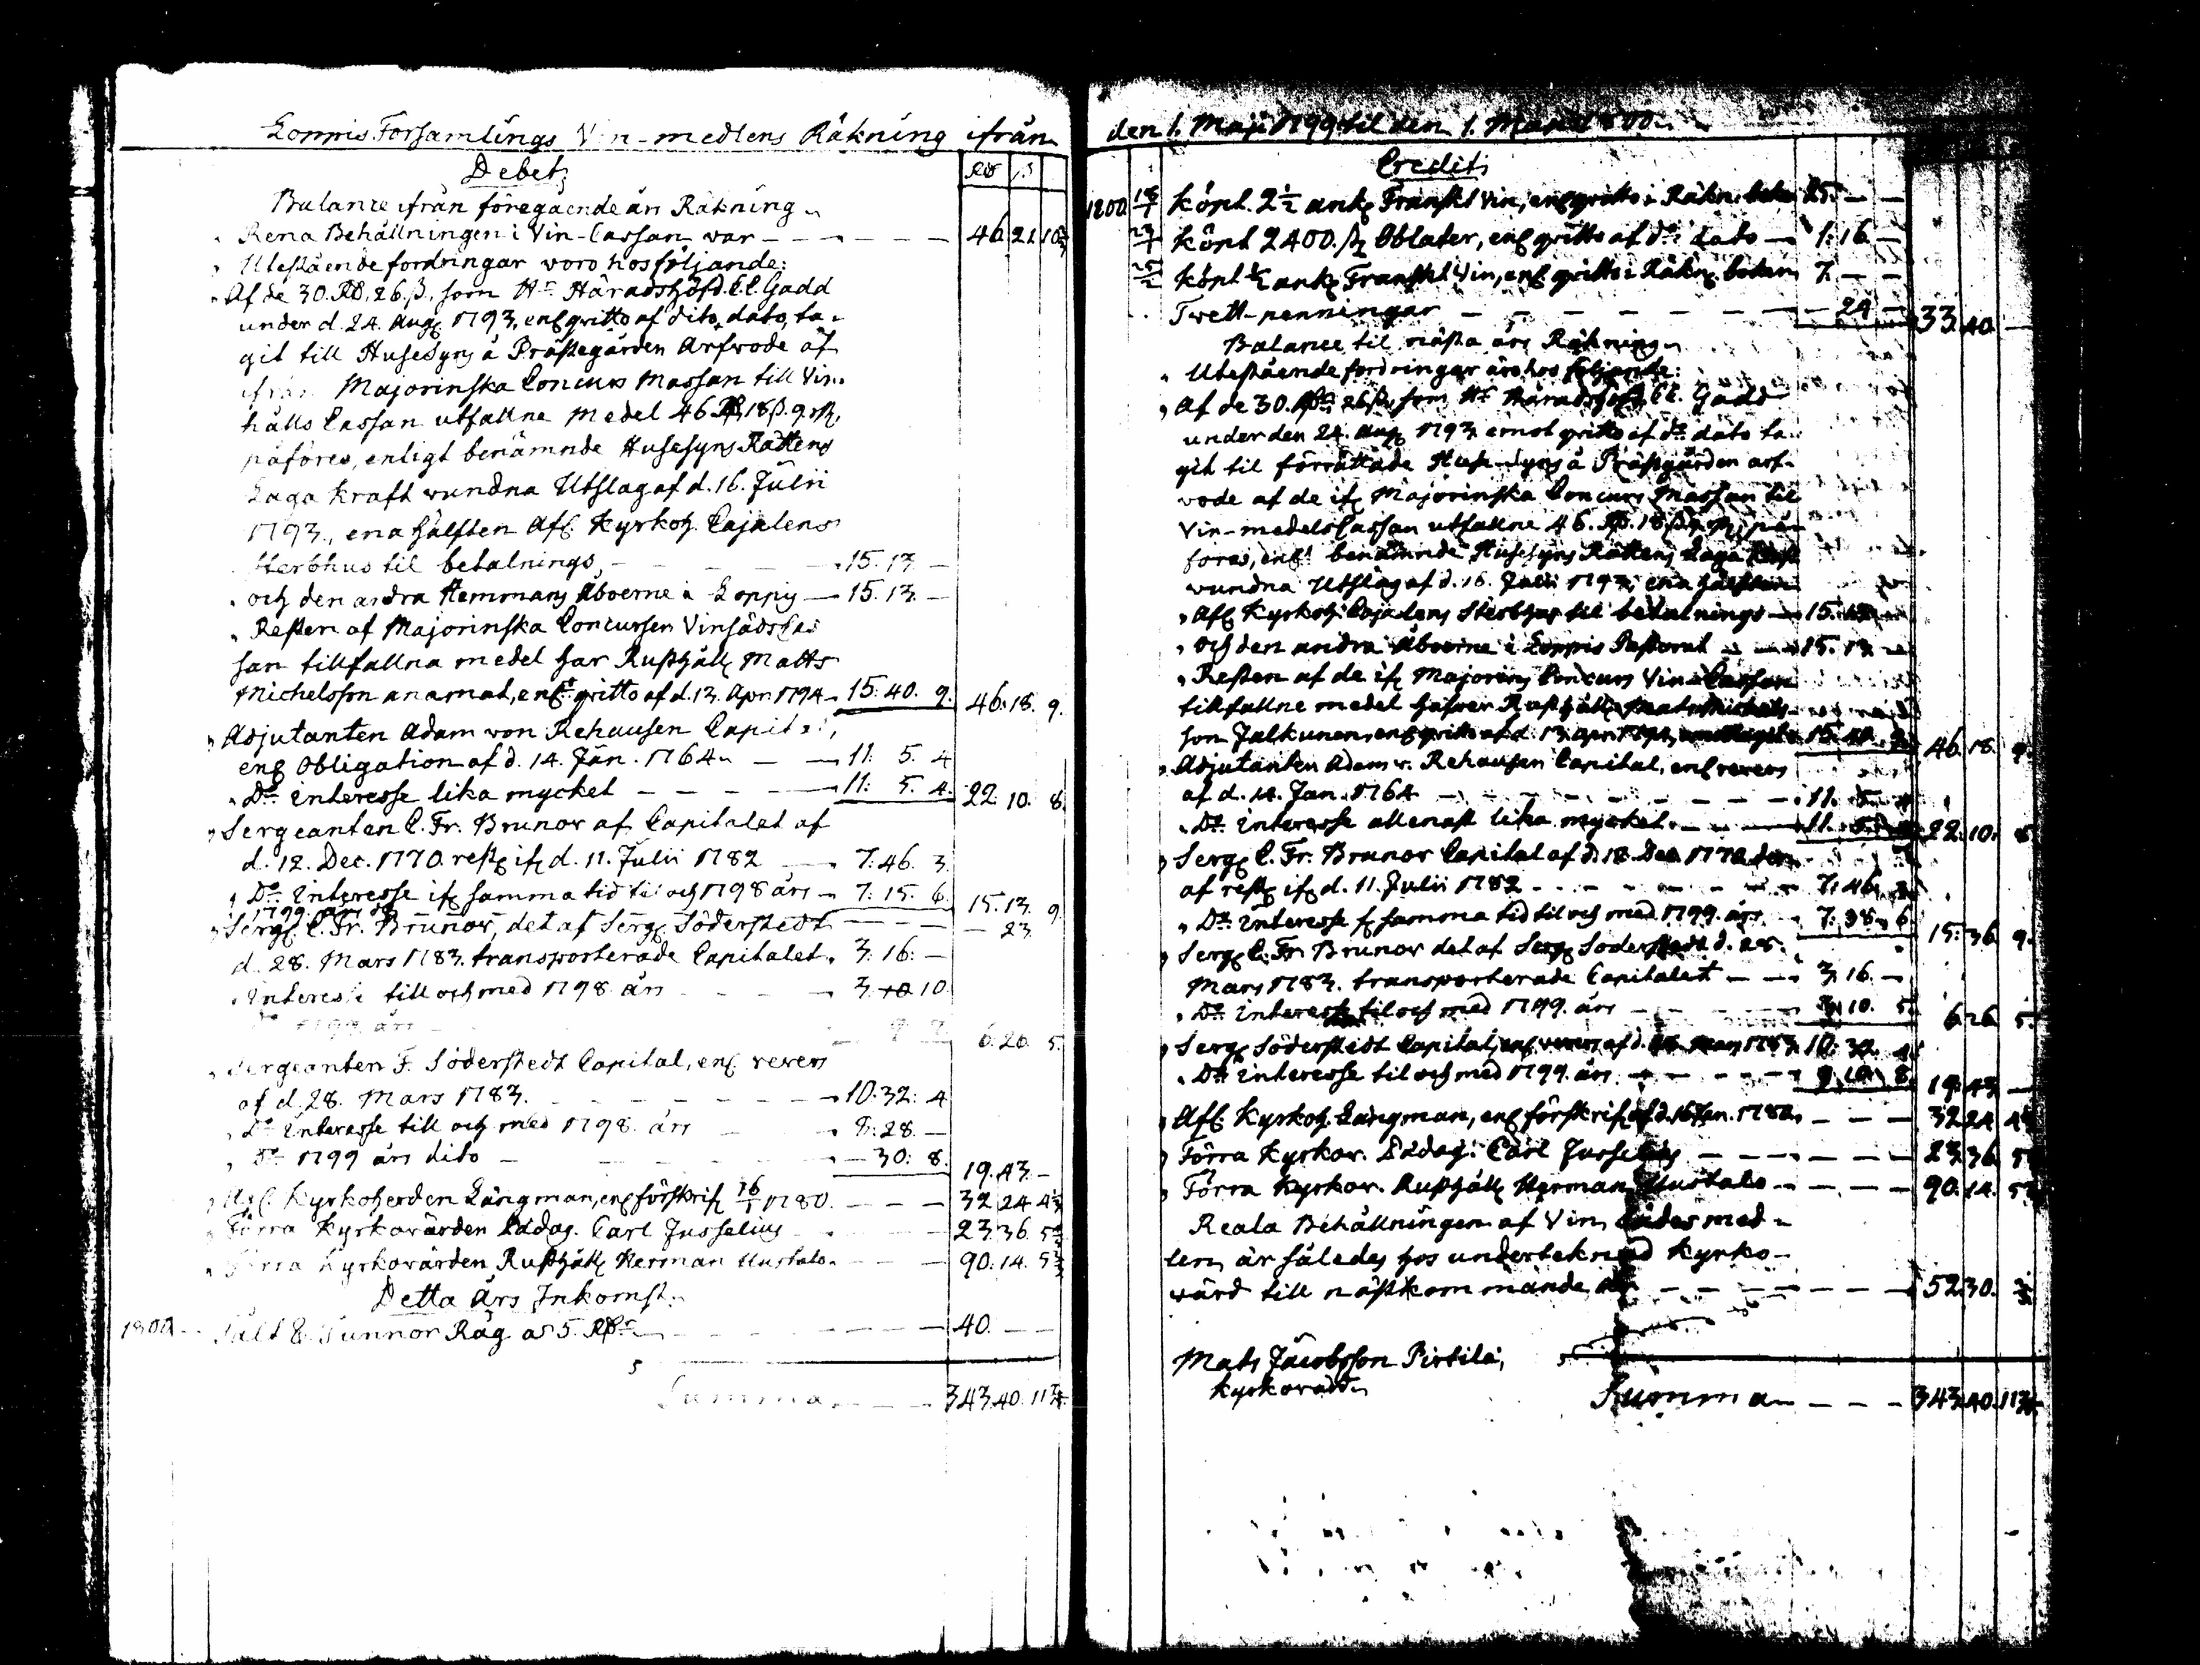 Loppis Församlings Vin-medlens Räkning ifrån
Debet
Rd ß
Balance ifrån föregående års Räkning
Rena Behållningen i Vin-Cassan var — 46. 21. 10
Utestående fordringar voro hos följande:
Af de 30. Rd. 26. ß, som Hr Häradshöfd. C. C. Gadd
under d. 24. Aug. 1793, enl. qvitto af dito dato, ta-
git till Husesyns å Prästegården Arfvode af
ifrån Majorinska Concurs Massan till Vin-
hålls Cassan utfallne medel 46 Rd 18 ß. 9 rst.
påföres, enligt benämnde Husesyns Rättens
Laga kraft vundna Utslag af d. 16. Julii
1793., ena hälften Afl. Kyrkoh. Cajalens
Sterbhus til betalnings — 15. 13. —
och den andra Hemmans Åboerne i Loppis — 15. 13. —
Resten af Majorinska Concursen Vinsäds Cas
san tillfallna medel har Rusthåll. Matts
Michelsson anamat, enl. qvitto af d. 13. Apr. 1794 — 15. 40. 9. 46. 18. 9.
Adjutanten Adam von Rehausen Capital,
enl. Obligation af d. 14. Jan. 1764 — 11. 5. 4
Do Interesse lika mycket — 11. 5. 4. 22. 10. 8.
Sergeanten C. Fr. Brunor af Capitalet af
d. 12. Dec. 1770. rest. if. d. 11. Julii 1782 — 7. 46. 3.
Do Interesse if. samma tid til och 1798 års — 7. 15. 6. 15. 13. 9.
1799 — 23.
Serg. C. Fr. Brunor, det af Serg. Söderstedt
d. 28. Mars 1783. transporterade Capitalet. 3. 16. —
Interesse till och med 1798 års — 3. 10
Do 1799 års — 6. 26. 5.
Sergeanten F. Söderstedt Capital, enl. revers
af d. 28. Mars 1783. — 10. 32. 4
Do Interesse till och med 1798 års — 8. 28. —
Do 1799 års dito — 30. 8. 19. 43. —
Afl. Kyrkoherden Långman, enl. förskrif. 16/1 1780. — 32. 24. 4
Förra Kyrkovärden Lddag. Carl Jusselius — 23. 36. 5
Förra Kyrkovärden Rusthåll. Herman Uustalo — 90. 14. 5
Detta Års Inkomst.
1800 — Sålt 8. Tunnor Råg a 5. Rdr — 40. — —
Summa — 343. 40. 11
den 1. Maji 1799 til den 1. Maji 1800.
Credit
1800 18/1 köpt 2 1/2 ank. Franskt Vin, enl. qvitto i Räkn. — 25. — —
köpt 2400. st. Oblater, enl. qvitto af do dato — 1. 16. —
köpt 1/2 ank. Franskt Vin, enl. qvitto i Räkn. — 7. — —
Tvett-penningar — 24 — 33. 40. —
Balance til nästa års Räkning
Utestående fordringar äro hos följande:
Af de 30. Rdr 26 ß, som Hr Häradshöfd. C. C. Gadd
under den 24. Aug. 1793 emot qvitto af do dato ta-
git til förrättade Huse-Syns å Prästgården arf-
vode af de if. Majorinska Concurs Massan til
Vin-medels Cassan utfallne 46. Rd. 18 ß 9 rst, på-
föres, enl. benämnde Husesyns Rättens Laga kraft
vundna Utslag af d. 16. Julii 1793, ena hälften
Afl. Kyrkoh. Cajalens Sterbhus til betalnings — 15. 13. —
och den andra Åboerne i Loppis Pastorat — 15. 13. —
Resten af de if. Majorins Concurs Vin-Cassan
tillfallne medel hafver Rusthåll. Mats Michels-
son Jalkunen, enl. qvitto af d. 13. Apr. 1794, — 15. 40. 9. 46. 18. 9.
Adjutanten Adam v. Rehausen Capital, enl. revers
af d. 14. Jan. 1764 — 11. 5. 4
Do Interesse allenast lika mycket — 11. 5. 4 22. 10. 8.
Serg. C. Fr. Brunor Capital af d. 18. Dec. 1770
af rest. if. d. 11. Julii 1782 — 7. 46. 3.
Do Interesse if samma tid til och med 1799. års — 7. 38. 6. 15. 36. 9.
Serg. C. Fr. Brunor det af Serg. Söderstedt d. 28.
Mars 1783. transporterade Capitalet — 3. 16. —
Do Interesse til och med 1799. års — 3. 10. 5. 6. 26. 5.
Serg. Söderstedt Capital, enl. revers af d. 28 Mars 1783 10. 32. 4
Do Interesse til och med 1799. års — 9. 10. 8. 19. 43. —
Afl. Kyrkoh. Långman, enl. förskrif. af d. 16 Jan. 1780. — 32. 24. 4
Förra Kyrkov. Lddag. Carl Jusselius — 23. 36. 5
Förra Kyrkov. Rusthåll. Herman Uustalo — 90. 14. 5
Reala Behållningen af Vin Sädes med-
len, är således hos undertecknad Kyrko-
värd till nästkommande år — 52. 30.
Mats Jacobsson Pirtilä,
kyrkovärd
Summa — 343. 40. 11